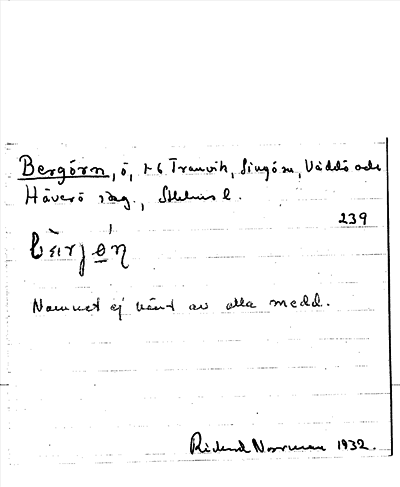 Bergörn, ö, t. Tranvik, Singö sn, Väddö och
Häverö slag., Sthlms l.
239
Namnet ej känt av alla medd.
Rickard Norrman 1932.